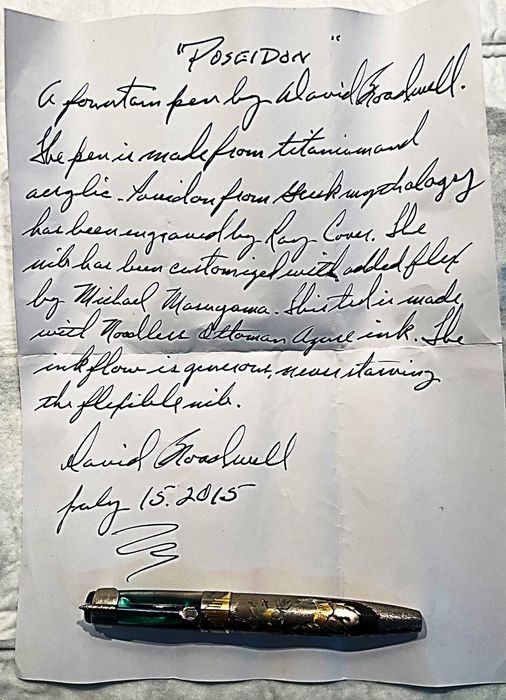 "POSEIDON"
A fountain pen by David Broadwell.
The pen is made from titanium and
acrylic. Poseidon from Greek mythology
has been engraved by Ray Cover. The
nib has been customized with added flex
by Michael Masuyama. This test is made
with Noodlers Ottoman Azure ink. The
ink flow is generous, never starving
the flexible nib.
David Broadwell
July 15. 2015